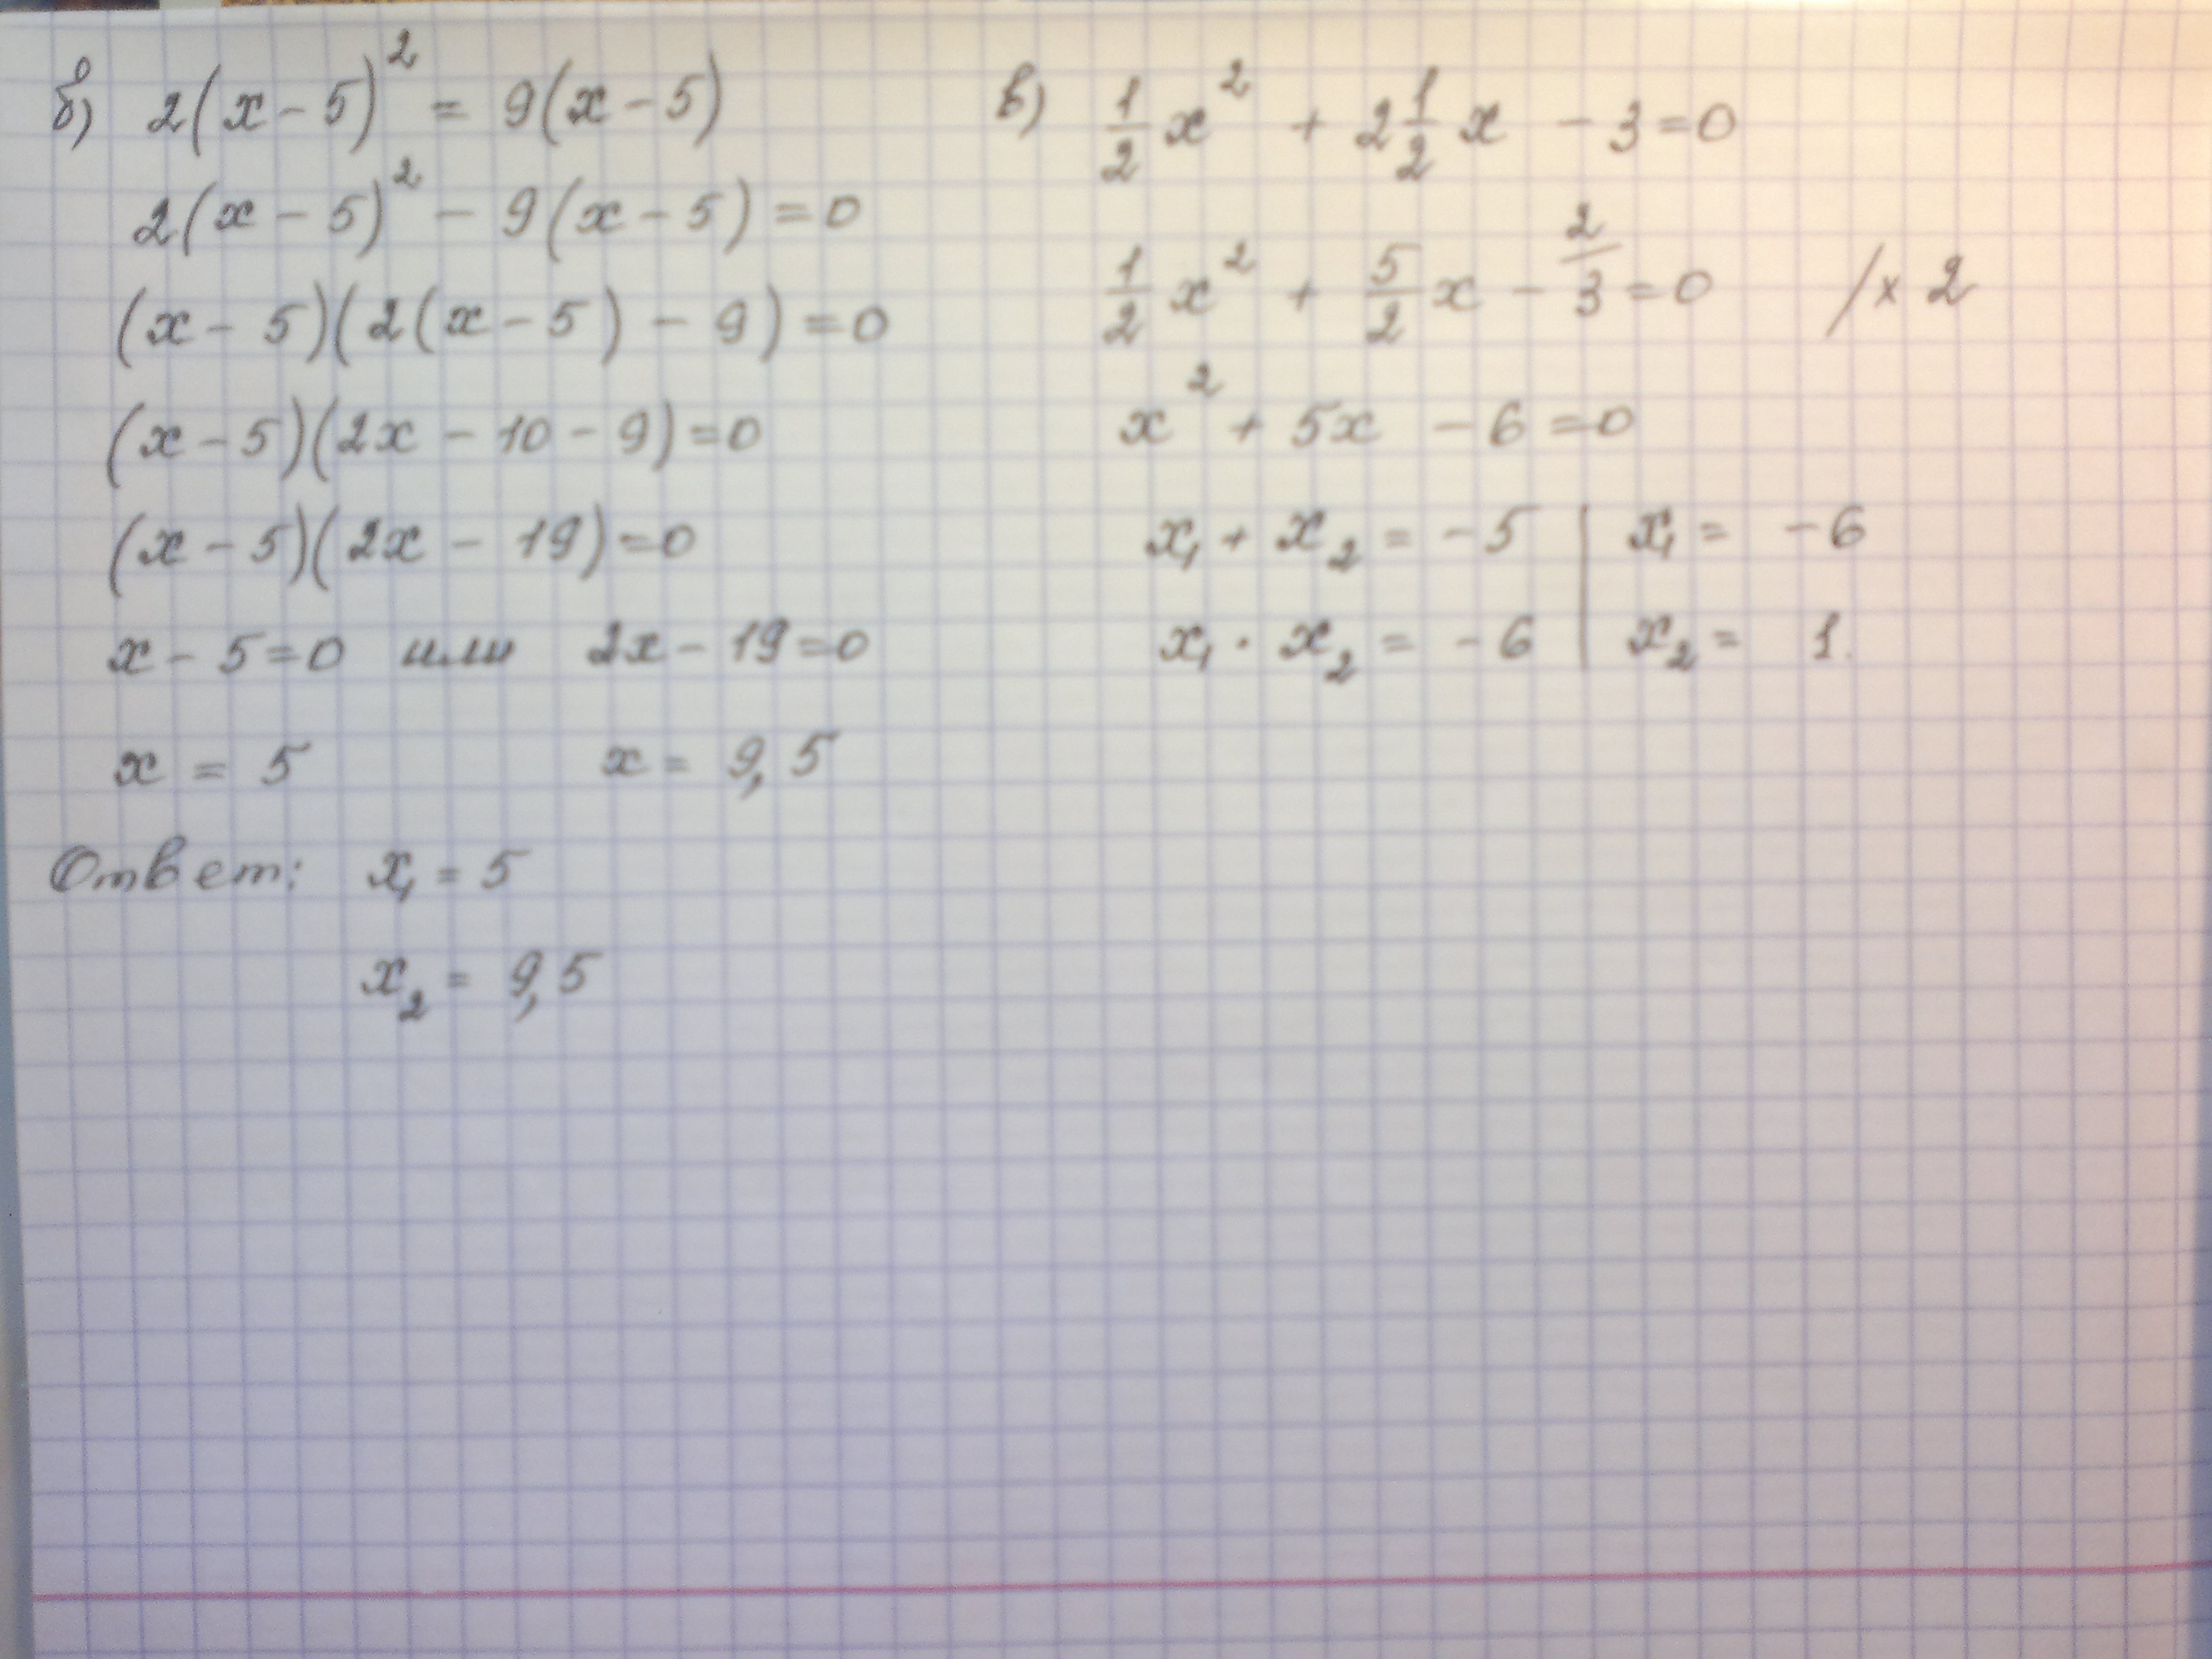 б) 2(x - 5)² = 9(x - 5)
2(x - 5)² - 9(x - 5) = 0
(x - 5)(2(x - 5) - 9) = 0
(x - 5)(2x - 10 - 9) = 0
(x - 5)(2x - 19) = 0
x - 5 = 0 или 2x - 19 = 0
x = 5 x = 9,5
Ответ: x₁ = 5
x₂ = 9,5
в) 1/2 x² + 2 1/2 x - 3 = 0
1/2 x² + 5/2 x - 2/3 = 0 / × 2
x² + 5x - 6 = 0
x₁ + x₂ = -5 | x₁ = -6
x₁ · x₂ = -6 | x₂ = 1.